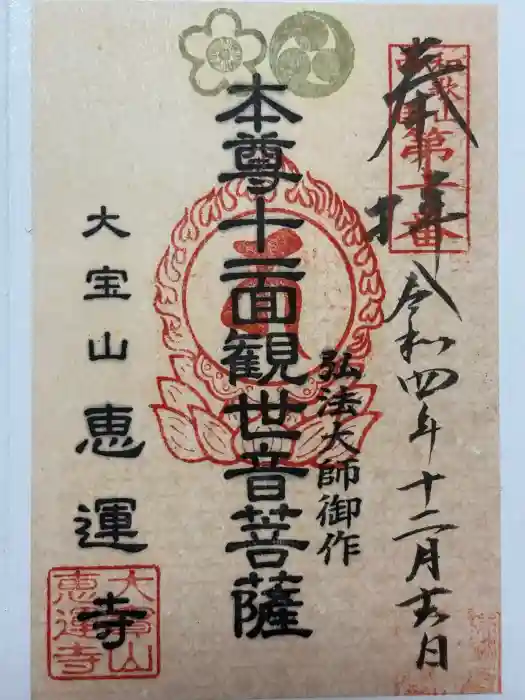 奉拝
和歌山
西国
第十番
令和四年十二月 日
弘法大師御作
本尊十一面観世音菩薩
大宝山恵運寺
大寶山
恵運寺